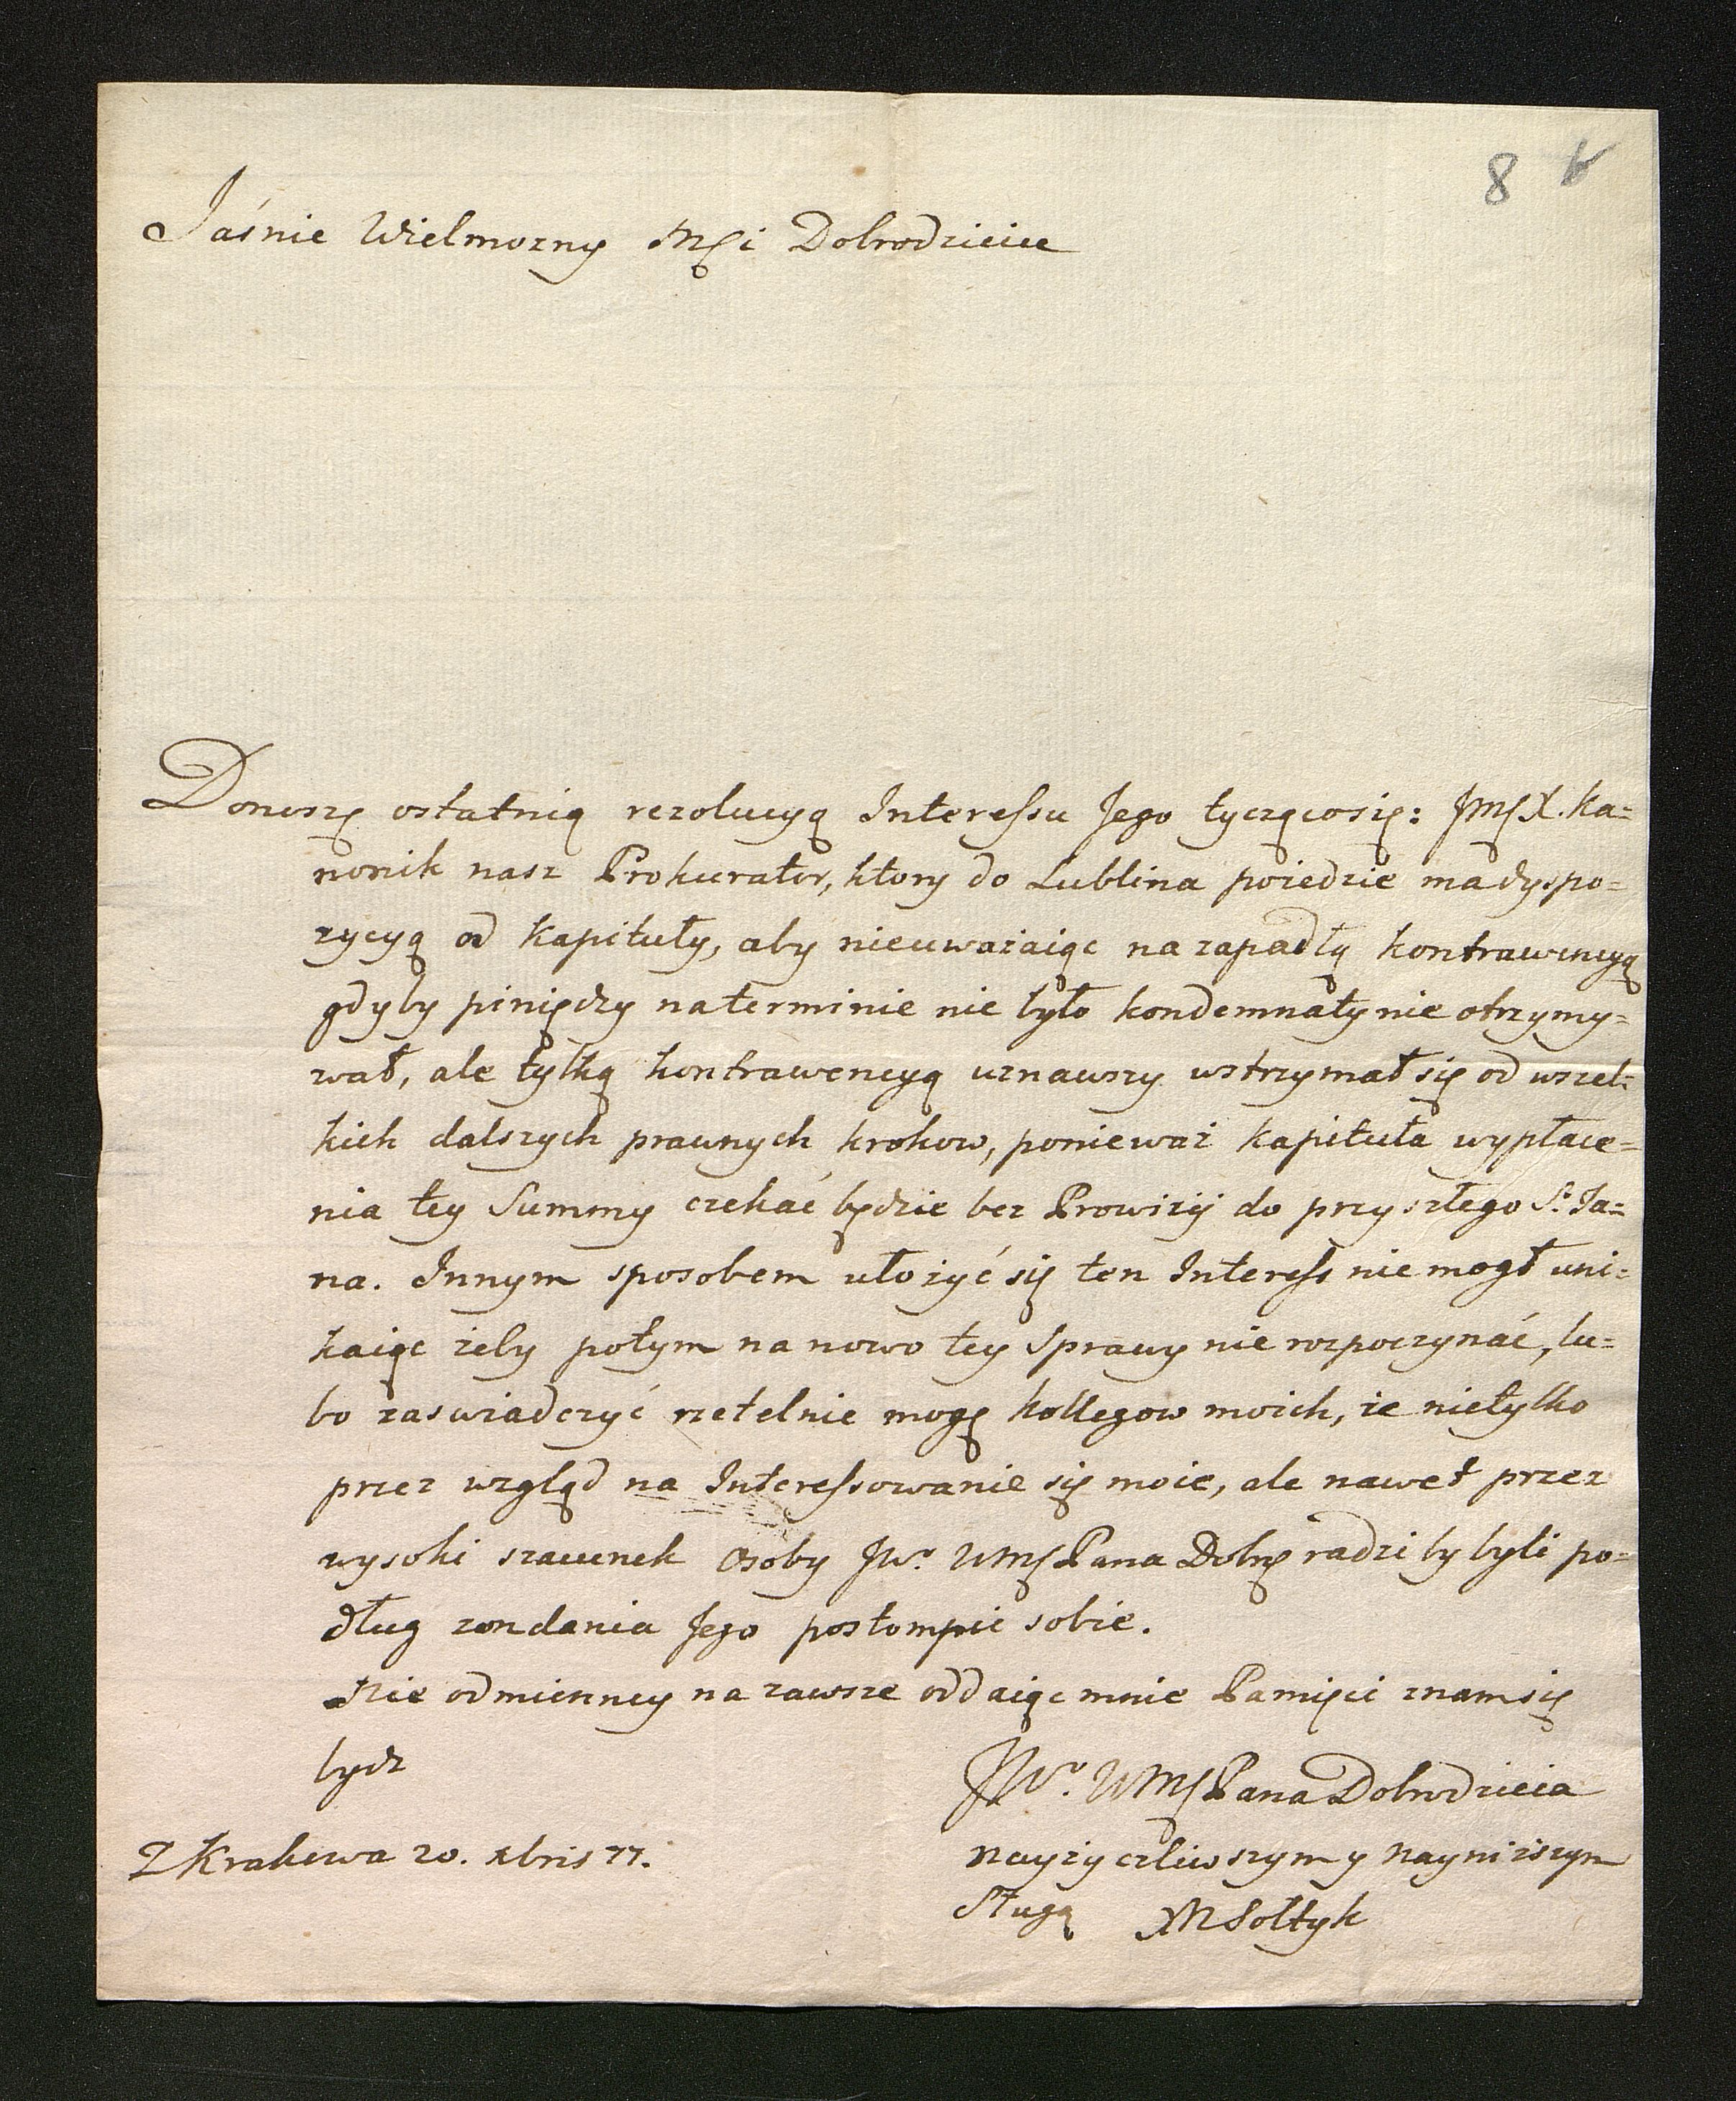 8
Jaśnie Wielmozny Mći Dobrodzieiu
Donoszę ostatnią rezolucyą Interessu Jego tyczącosię: JMć X. Ka=
nonik nasz Prokurator, ktory do Lublina poiedzie ma dyspo=
zycyą od Kapituły, aby nieuważaiąc na zapadłą kontrawencyą
gdyby piniędzy na terminie nie było kondemnaty nie otrzymy=
wał, ale tylką kontrawencyą uznawszy wstrzymał się od wszel=
kich dalszych prawnych krokow, ponieważ Kapituła wypłace=
nia tey Summy czekać będzie bez Prowizij do przyszłego S. Ja=
na. Innym sposobem ułożyć się ten Interess nie mogł uni=
kaiąc żeby potym na nowo tey Sprawy nie rozpoczynać, lu=
bo zaswiadczyć rzetelnie mogę Kollegow moich, ze nietylko
przez wzgląd na Interessowanie się moie, ale nawet przez
wysoki szacunek Osoby JW. WMć Pana Dobrę radzi by byli po=
dług zondania Jego postompic sobie.
Nie odmienney na zawsze oddaiąc mnie Pamięci znam się
bydz
JW. WMć Pana Dobrodzieia
Z Krakowa 20. Xbris 77.
nayzyczliwszym y nayniższym
Sługą MSołtyk